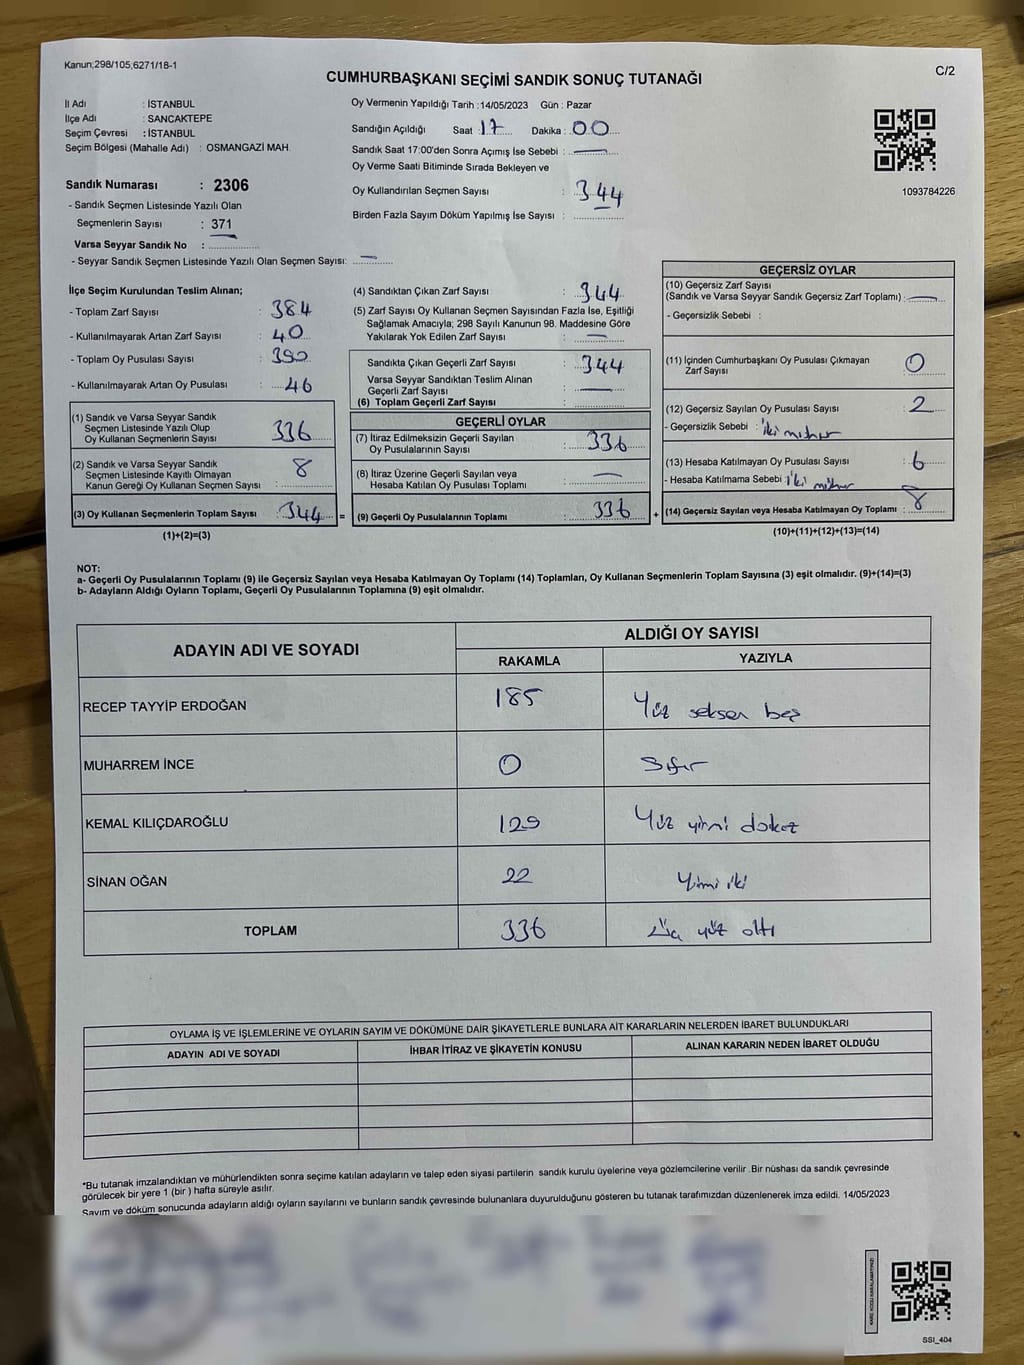 Kanun;298/105,6271/18-1
C/2
CUMHURBAŞKANI SEÇİMİ SANDIK SONUÇ TUTANAĞI
İl Adı : İSTANBUL
İlçe Adı : SANCAKTEPE
Seçim Çevresi : İSTANBUL
Seçim Bölgesi (Mahalle Adı) : OSMANGAZİ MAH.
Sandık Numarası : 2306
- Sandık Seçmen Listesinde Yazılı Olan
Seçmenlerin Sayısı : 371
Varsa Seyyar Sandık No :
- Seyyar Sandık Seçmen Listesinde Yazılı Olan Seçmen Sayısı:
Oy Vermenin Yapıldığı Tarih :14/05/2023 Gün : Pazar
Sandığın Açıldığı Saat :17 Dakika :00
Sandık Saat 17:00'den Sonra Açımış İse Sebebi :
Oy Verme Saati Bitiminde Sırada Bekleyen ve
Oy Kullandırılan Seçmen Sayısı : 344
Birden Fazla Sayım Döküm Yapılmış İse Sayısı :
1093784226
İlçe Seçim Kurulundan Teslim Alınan;
- Toplam Zarf Sayısı : 384
- Kullanılmayarak Artan Zarf Sayısı : 40
- Toplam Oy Pusulası Sayısı : 390
- Kullanılmayarak Artan Oy Pusulası : 46
(1) Sandık ve Varsa Seyyar Sandık
Seçmen Listesinde Yazılı Olup
Oy Kullanan Seçmenlerin Sayısı : 336
(2) Sandık ve Varsa Seyyar Sandık
Seçmen Listesinde Kayıtlı Olmayan
Kanun Gereği Oy Kullanan Seçmen Sayısı : 8
(3) Oy Kullanan Seçmenlerin Toplam Sayısı : 344 =
(1)+(2)=(3)
(4) Sandıktan Çıkan Zarf Sayısı : 344
(5) Zarf Sayısı Oy Kullanan Seçmen Sayısından Fazla İse, Eşitliği
Sağlamak Amacıyla; 298 Sayılı Kanunun 98. Maddesine Göre
Yakılarak Yok Edilen Zarf Sayısı :
Sandıkta Çıkan Geçerli Zarf Sayısı : 344
Varsa Seyyar Sandıktan Teslim Alınan
Geçerli Zarf Sayısı :
(6) Toplam Geçerli Zarf Sayısı :
GEÇERLİ OYLAR
(7) İtiraz Edilmeksizin Geçerli Sayılan
Oy Pusulalarının Sayısı : 336
(8) İtiraz Üzerine Geçerli Sayılan veya
Hesaba Katılan Oy Pusulası Toplamı :
(9) Geçerli Oy Pusulalarının Toplamı : 336 +
GEÇERSİZ OYLAR
(10) Geçersiz Zarf Sayısı
(Sandık ve Varsa Seyyar Sandık Geçersiz Zarf Toplamı) :
- Geçersizlik Sebebi :
(11) İçinden Cumhurbaşkanı Oy Pusulası Çıkmayan
Zarf Sayısı : 0
(12) Geçersiz Sayılan Oy Pusulası Sayısı : 2
- Geçersizlik Sebebi : iki mühür
(13) Hesaba Katılmayan Oy Pusulası Sayısı : 6
- Hesaba Katılmama Sebebi : iki mühür
(14) Geçersiz Sayılan veya Hesaba Katılmayan Oy Toplamı : 8
(10)+(11)+(12)+(13)=(14)
NOT:
a- Geçerli Oy Pusulalarının Toplamı (9) ile Geçersiz Sayılan veya Hesaba Katılmayan Oy Toplamı (14) Toplamları, Oy Kullanan Seçmenlerin Toplam Sayısına (3) eşit olmalıdır. (9)+(14)=(3)
b- Adayların Aldığı Oyların Toplamı, Geçerli Oy Pusulalarının Toplamına (9) eşit olmalıdır.
ADAYIN ADI VE SOYADI
ALDIĞI OY SAYISI
RAKAMLA YAZIYLA
RECEP TAYYİP ERDOĞAN 185 Yüz seksen beş
MUHARREM İNCE 0 Sıfır
KEMAL KILIÇDAROĞLU 129 Yüz yirmi dokuz
SİNAN OĞAN 22 Yirmi iki
TOPLAM 336 yüz altı
OYLAMA İŞ VE İŞLEMLERİNE VE OYLARIN SAYIM VE DÖKÜMÜNE DAİR ŞİKAYETLERLE BUNLARA AİT KARARLARIN NELERDEN İBARET BULUNDUKLARI
ADAYIN ADI VE SOYADI İHBAR İTİRAZ VE ŞİKAYETİN KONUSU ALINAN KARARIN NEDEN İBARET OLDUĞU
*Bu tutanak imzalandıktan ve mühürlendikten sonra seçime katılan adayların ve talep eden siyasi partilerin sandık kurulu üyelerine veya gözlemcilerine verilir .Bir nüshası da sandık çevresinde
görülecek bir yere 1 (bir ) hafta süreyle asılır.
Sayım ve döküm sonucunda adayların aldığı oyların sayılarını ve bunların sandık çevresinde bulunanlara duyurulduğunu gösteren bu tutanak tarafımızdan düzenlenerek imza edildi. 14/05/2023
SSI_404